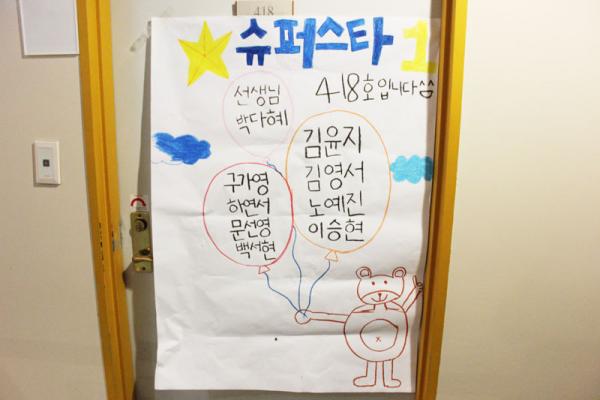 418
슈퍼스타 1
418호입니다 ^^
선생님
박다혜
김윤지
김영서
노예진
이승현
구가영
하연서
문선영
백서현
x